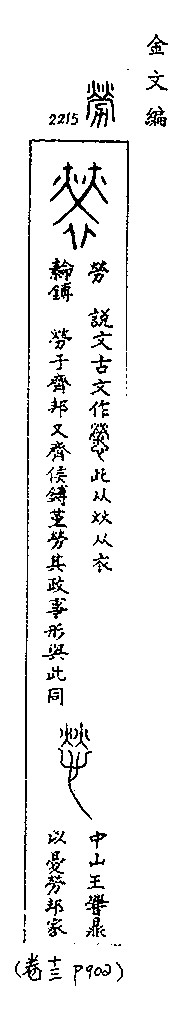 金文編
2215 勞
勞 說文古文作𢥒此从𤇾从衣
𦅫鎛 勞于齊邦又齊侯鎛堇勞其政事形與此同
中山王𰯼鼎
以憂勞邦家
(卷十三 P902)